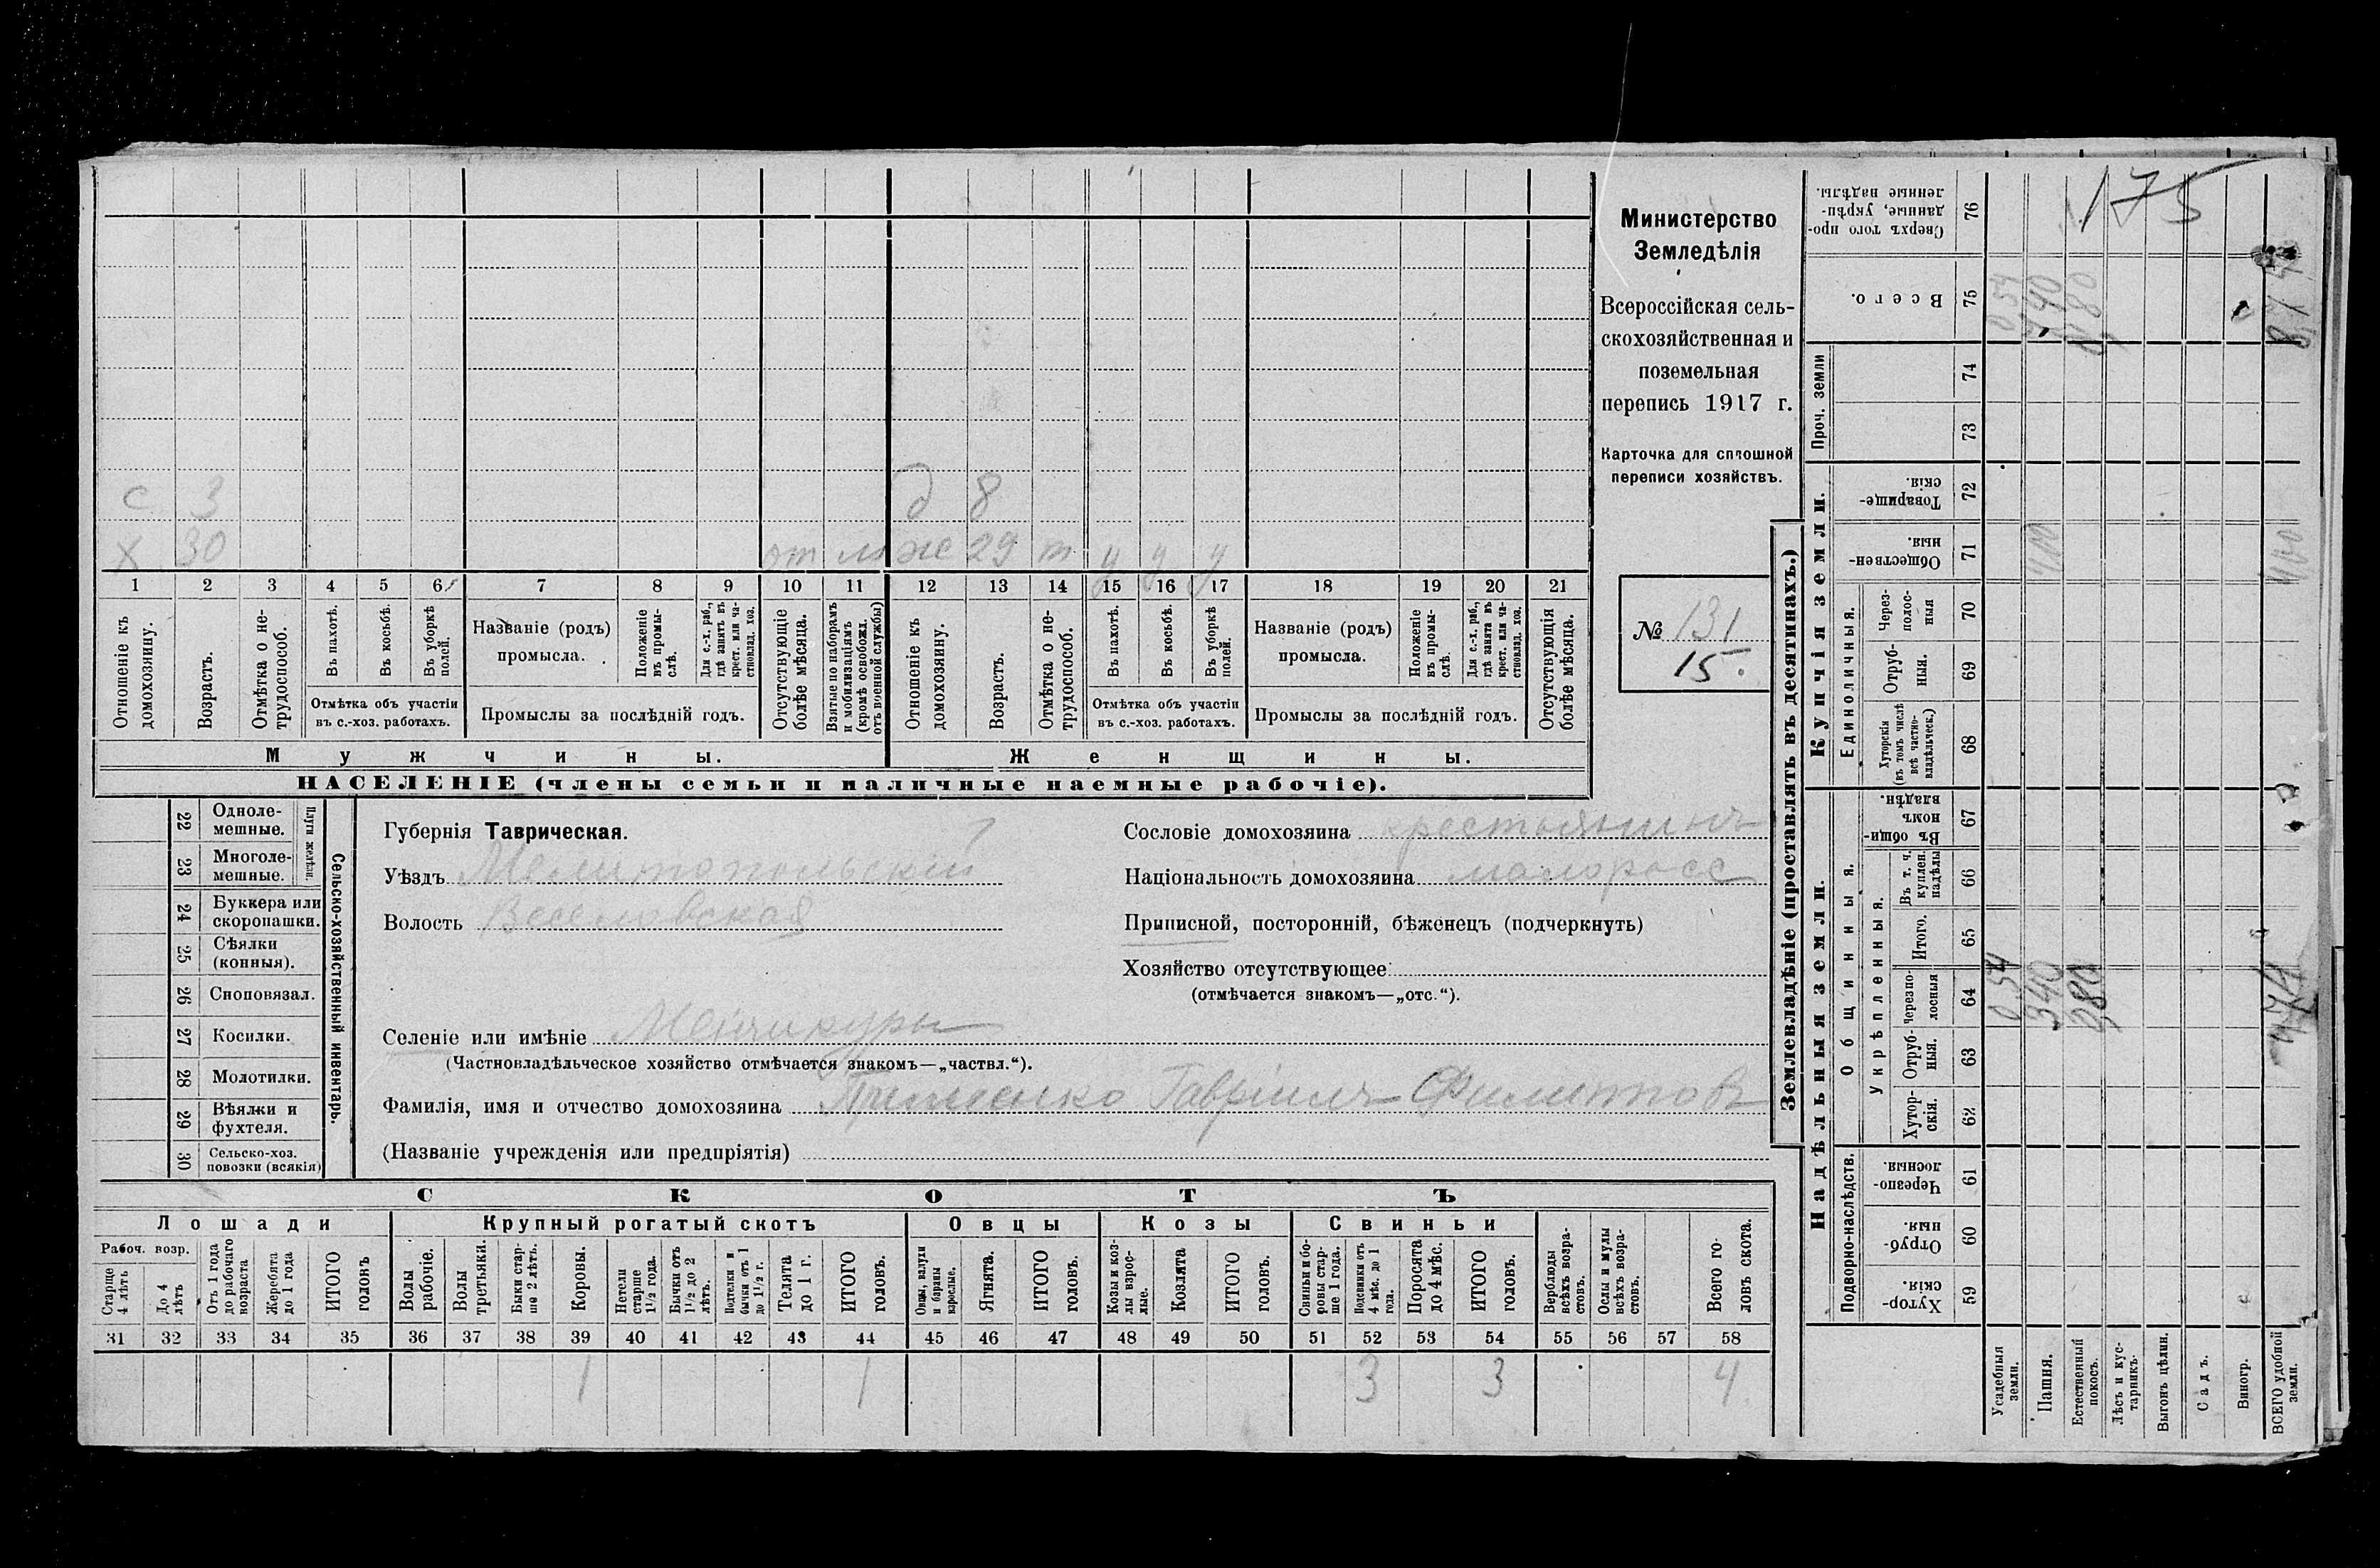 175
Министерство
Земледѣлія
Всероссійская сель-
скохозяйственная и
поземельная
перепись 1917 г.
Карточка для сплошной
переписи хозяйствъ.
№ 131
15.
с 3 д 8
х 30 от м ж 29 т у у у
1 2 3 4 5 6 7 8 9 10 11 12 13 14 15 16 17 18 19 20 21
Отношеніе къ домохозяину.
Возрастъ.
Отмѣтка о не-трудоспособ.
Въ пахотѣ.
Въ косьбѣ.
Въ уборкѣ полей.
Отмѣтка объ участіи
въ с.-хоз. работахъ.
Названіе (родъ)
промысла.
Положеніе въ промы-слѣ.
Для с.-х. раб., гдѣ занятъ въ крест. или ча-стновлад. хоз.
Промыслы за послѣдній годъ.
Отсутствующіе болѣе мѣсяца.
Взятые по наборамъ и мобилизаціямъ (кромѣ освобожд. отъ военной службы)
Отношеніе къ домохозяину.
Возрастъ.
Отмѣтка о не-трудоспособ.
Въ пахотѣ.
Въ косьбѣ.
Въ уборкѣ полей.
Отмѣтка объ участіи
въ с.-хоз. работахъ.
Названіе (родъ)
промысла.
Положеніе въ промы-слѣ.
Для с.-х. раб., гдѣ занята въ крест. или ча-стновлад. хоз.
Промыслы за послѣдній годъ.
Отсутствующія болѣе мѣсяца.
Мужчины. Женщины.
НАСЕЛЕНІЕ (члены семьи и наличные наемные рабочіе).
Сельско-хозяйственный инвентарь.
Плуги желѣзн.
22 Одноле-мешные.
23 Многоле-мешные.
24 Буккера или скоропашки.
25 Сѣялки (конныя).
26 Сноповязал.
27 Косилки.
28 Молотилки.
29 Вѣялки и фухтеля.
30 Сельско-хоз. повозки (всякія)
Губернія Таврическая.
Уѣздъ Мелитопольскій
Волость Веселовская
Сословіе домохозяина крестьянинъ
Національность домохозяина малоросс
Приписной, посторонній, бѣженецъ (подчеркнуть)
Хозяйство отсутствующее
(отмѣчается знакомъ—„отс.“).
Селеніе или имѣніе Менчикуры
(Частновладѣльческое хозяйство отмѣчается знакомъ—„частвл.“).
Фамилія, имя и отчество домохозяина Гавріилъ Филиппов
(Названіе учрежденія или предпріятія)
СКОТЪ
Лошади Крупный рогатый скотъ Овцы Козы Свиньи
Рабоч. возр.
Старше 4 лѣтъ
До 4 лѣтъ
Отъ 1 года до рабочаго возраста
Жеребята до 1 года
ИТОГО головъ
Волы рабочіе.
Волы третьяки.
Быки стар-ше 2 лѣтъ.
Коровы.
Нетели старше 1½ года.
Бычки отъ 1½ до 2 лѣтъ.
Подтелки и бычки отъ 1 до 1½ г.
Телята до 1 г.
ИТОГО головъ.
Овцы, валухи и бараны взрослые.
Ягнята.
ИТОГО головъ.
Козы и коз-лы взрос-лые.
Козлята
ИТОГО головъ.
Свиньи и бо-ровы стар-ше 1 года.
Подсвинки отъ 4 мѣс. до 1 года.
Поросята до 4 мѣс.
ИТОГО головъ.
Верблюды всѣхъ возра-стовъ.
Ослы и мулы всѣхъ возра-стовъ.
Всего го-ловъ скота.
31 32 33 34 35 36 37 38 39 40 41 42 43 44 45 46 47 48 49 50 51 52 53 54 55 56 57 58
1 1 3 3 4
Землевладѣніе (проставлять въ десятинахъ.)
Надѣльныя земли. Купчія земли. Проч. земли
Подворно-наслѣдств.
Общинныя.
Укрѣпленныя.
Единоличныя.
59 Хутор-скія.
60 Отруб-ныя.
61 Черезпо-лосныя.
62 Хутор-скія.
63 Отруб-ныя.
64 Черезпо-лосныя
65 Итого.
66 Въ т. ч. куплен. надѣлы
67 Въ общи-номъ владѣн.
68 Хуторскія (въ томъ числѣ всѣ частно-владѣльческ.)
69 Отруб-ныя.
70 Через-полос-ныя
71 Обществен-ныя.
72 Товарище-скія.
73
74
75 Всего.
76 Сверхъ того про-данные, укрѣп-ленные надѣлы.
Усадебныя земли. 0,54 0,54
Пашня. 340 400 740
Естественный покосъ. 080 080
Лѣсъ и кус-тарникъ.
Выгонъ цѣлин.
Садъ.
Виногр.
ВСЕГО удобной земли. 474 400 874